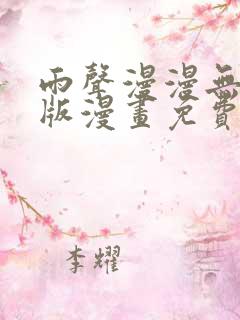 雨聲漫漫無
版漫畫免費
李耀